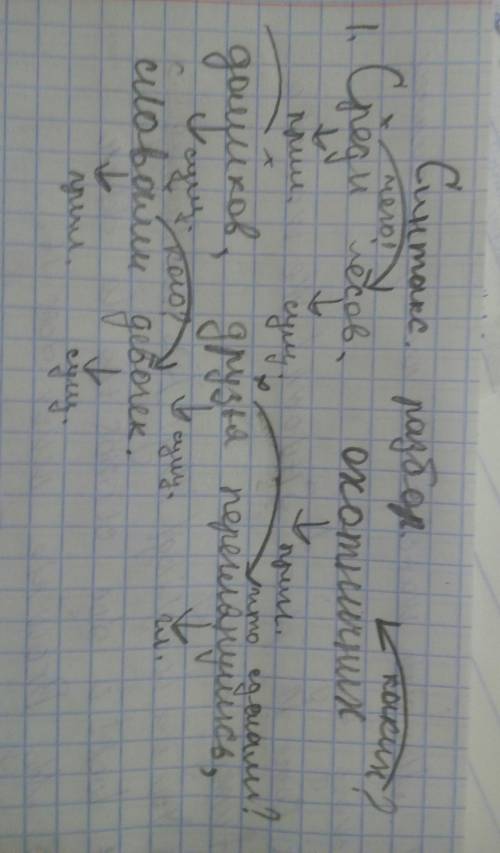 Синтакс. разбор.
чего? каких?
1. Среди лесов, охотничьих
прил. сущ. прил.
что сделали?
домиков, друзья переглянулись,
сущ. кого? сущ. гл.
словами девочек.
прил. сущ.